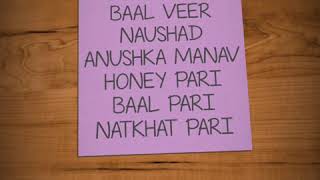 BAAL VEER
NAUSHAD
ANUSHKA MANAV
HONEY PARI
BAAL PARI
NATKHAT PARI